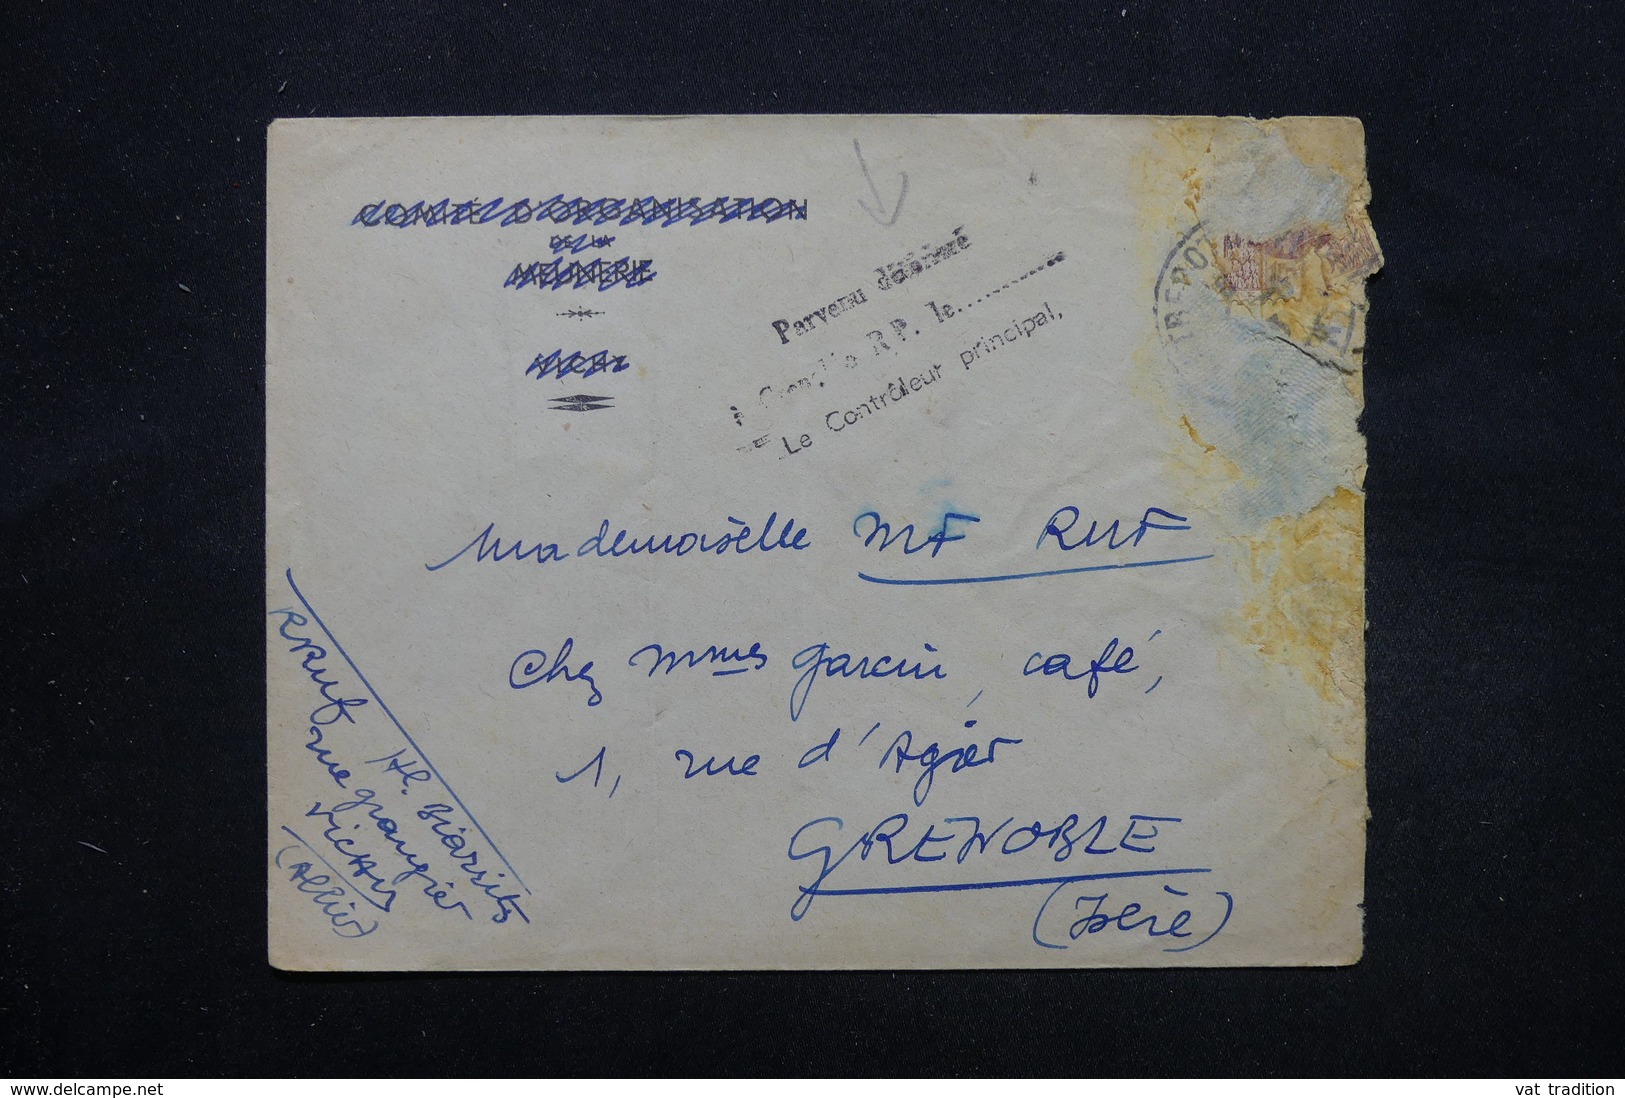 COMITÉ D'ORGANISATION
DE LA
MEUNERIE
VICHY
Parvenu détérioré
à Grenoble R.P. le............
Le Contrôleur principal,
TREPOT
Mademoiselle MF RUF
Chez Mmes Garcin, café,
1, rue d'Agier
GRENOBLE
(Isère)
R Ruf Hl. Biarritz
rue Grangier
Vichy
(Allier)
www.delcampe.net
vat tradition